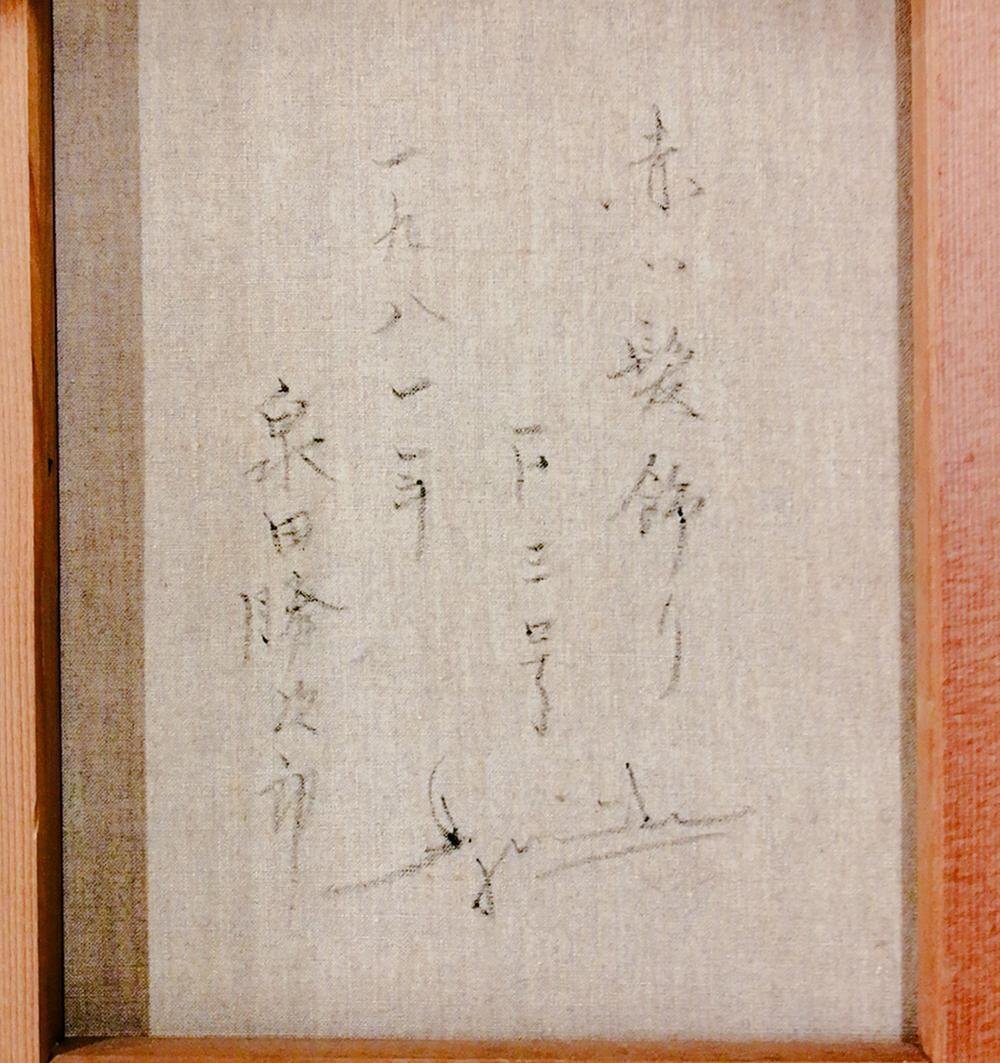 赤い髪飾り
F三号
一九八一年
泉田勝次郎